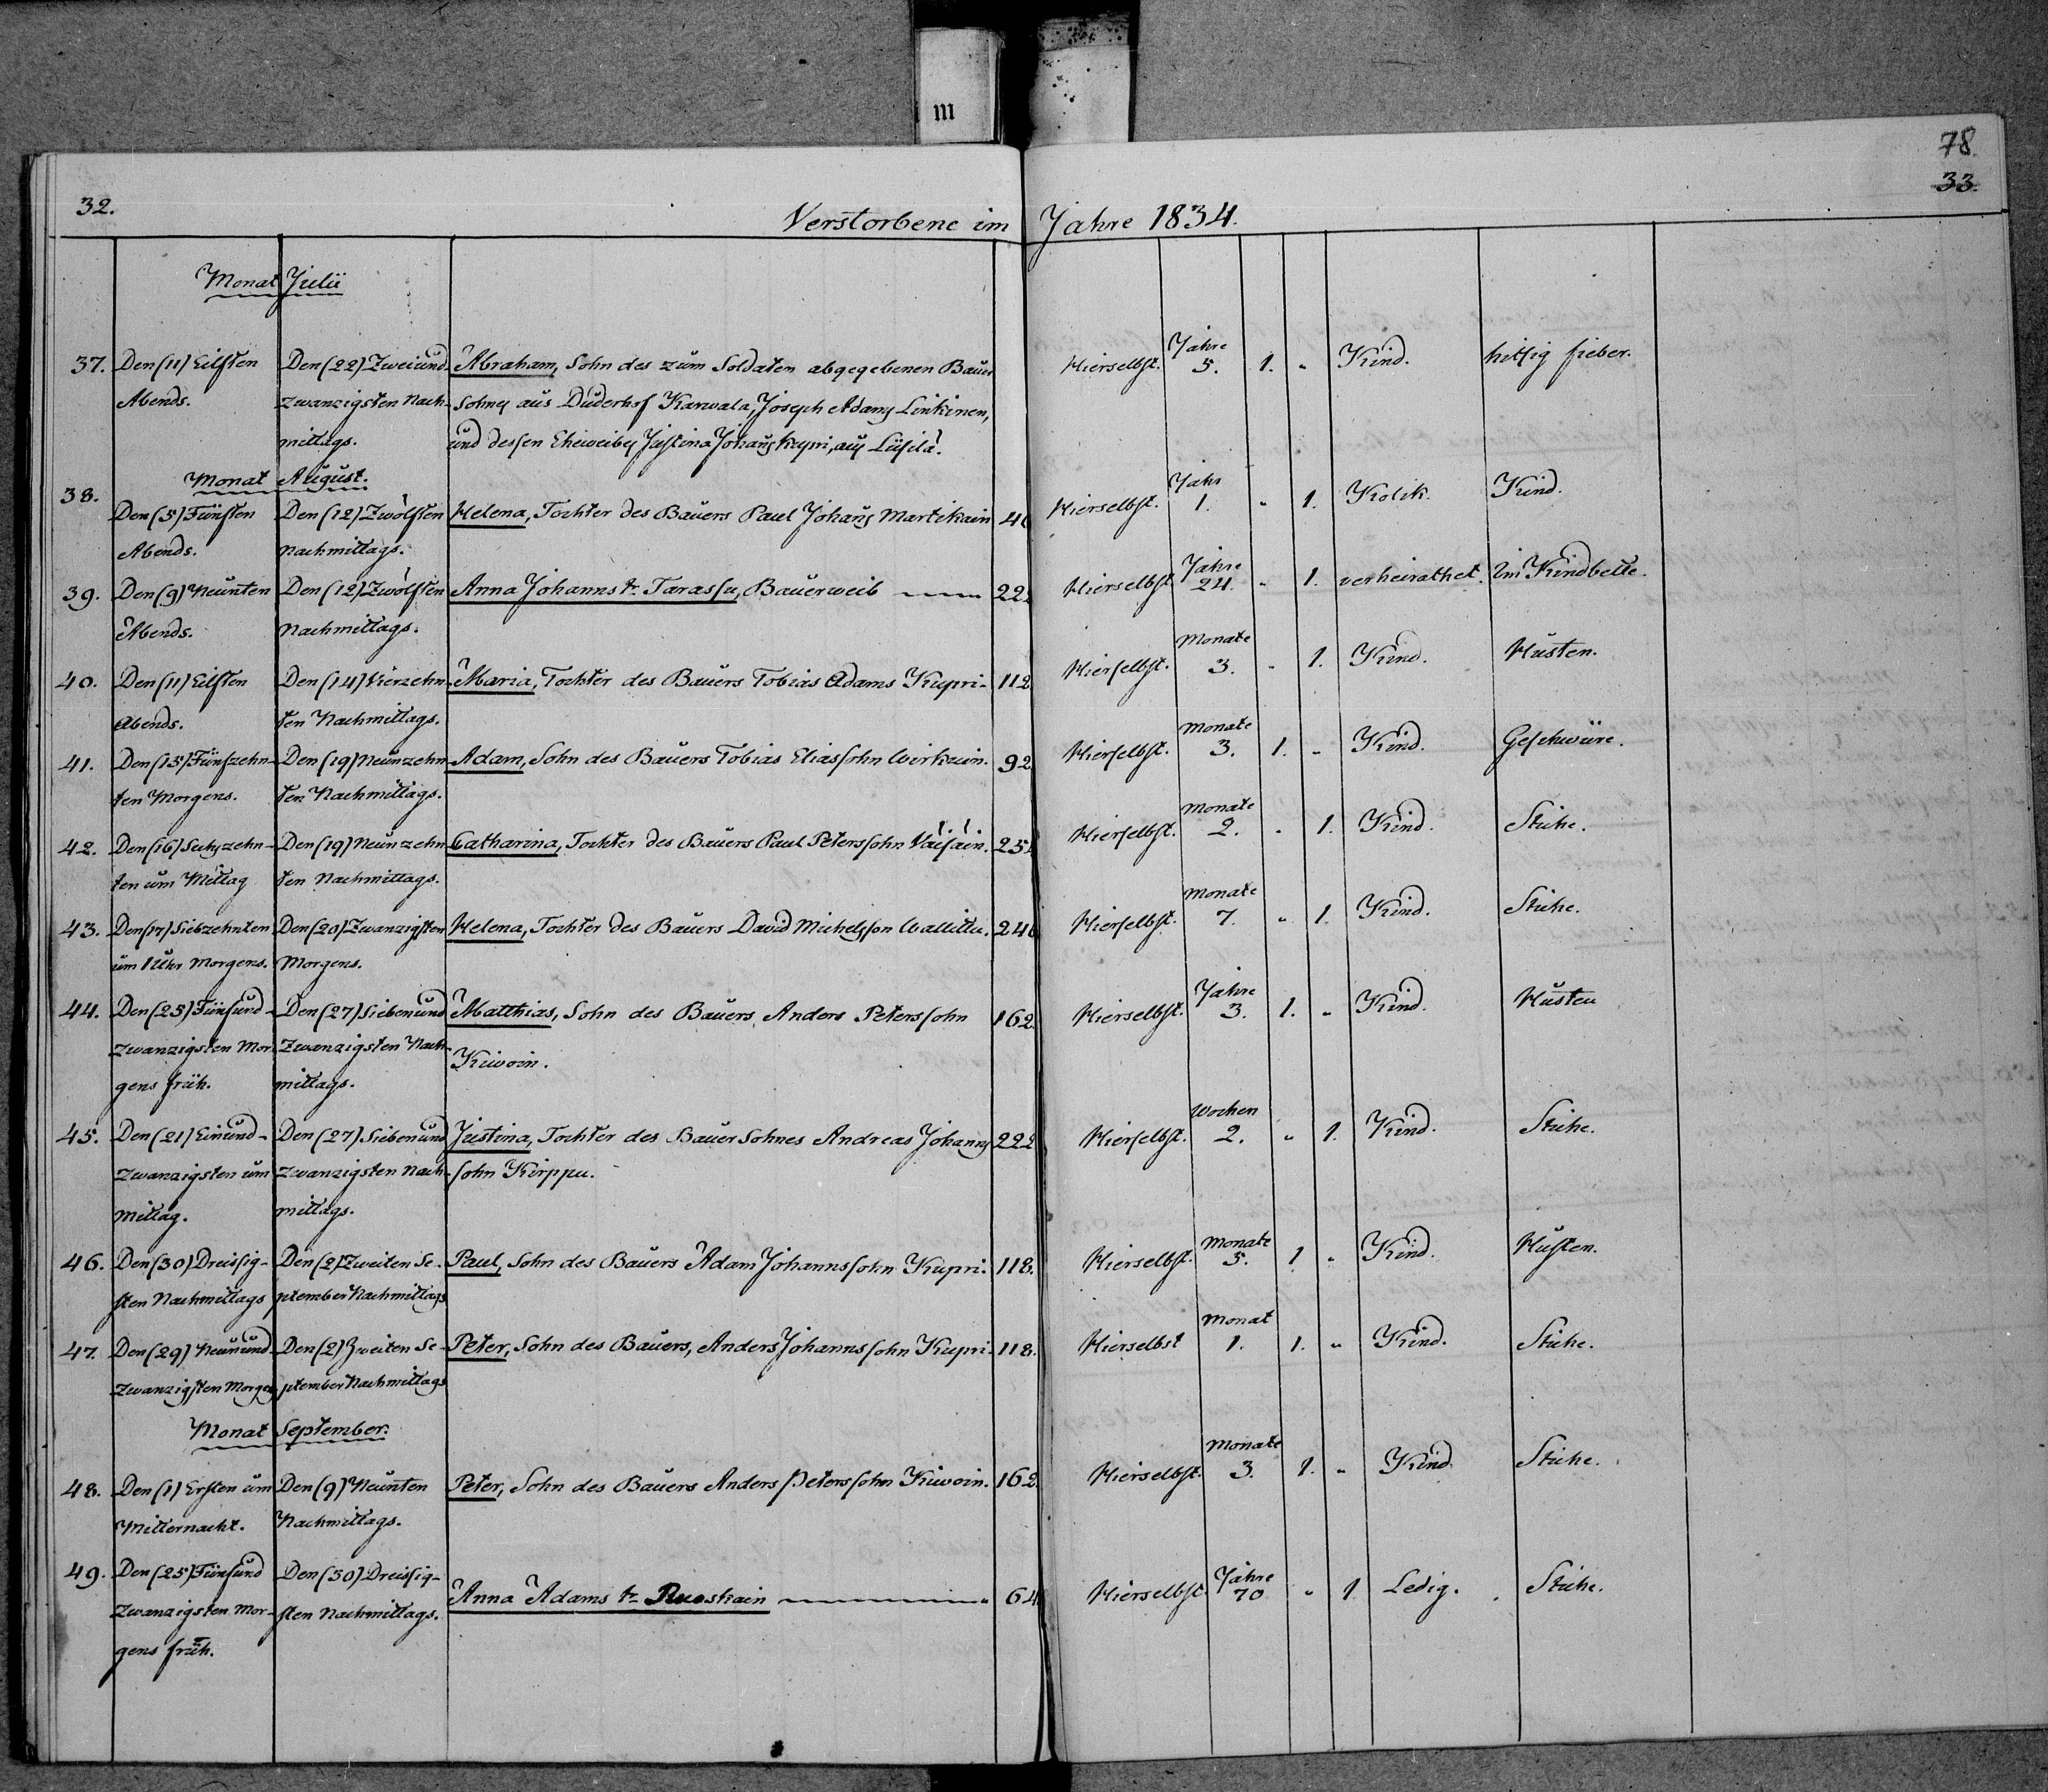 m
78
33.
32.
Verstorbene im Jahre 1834.
Monat Julii
37. Den (11) Eilften Den (22) Zweiund- Abraham, Sohn des zum Soldaten abgegebenen Bauer Hierselbst. Jahre 5. 1. " Kind. hitzig fieber.
Abends. zwanzigsten Nach- Sohnes aus Duderhof Karwala, Joseph Adams Linkinen,
mittags. und dessen Eheweibes Justina Johans Kupri, aus
Monat August.
38. Den (5) Fünften Den (12) Zwölften Helena, Tochter des Bauers Paul Johans Martikain Hierselbst. Jahr 1. " 1. Kolik. Kind.
Abends. Nachmittags.
39. Den (9) Neunten Den (12) Zwölften Anna Johanns tr Tarassu, Bauerweib Hierselbst Jahre 24. " 1. verheirathet. im Kindbette.
Abends. Nachmittags.
40. Den (11) Eilften Den (14) Vierzehn- Maria, Tochter des Bauers Tobias Adams Kupri- 112 Hierselbst. Monate 3. " 1. Kind. Husten.
Abends. ten Nachmittags.
41. Den (15) Fünfzehn- Den (19) Neunzehn- Adam, Sohn des Bauers Tobias Eliassohn Wirkain. 92 Hierselbst. Monate 3. 1. " Kind. Geschwüre.
ten Morgens. ten Nachmittags.
42. Den (16) Sechzehn- Den (19) Neunzehn- Catharina, Tochter des Bauers Paul Peterssohn Väisäin. 25 Hierselbst. Monate 2. " 1. Kind. Stiche.
ten um Mittag ten Nachmittags.
43. Den (17) Siebzehnten Den (20) Zwanzigsten Helena, Tochter des Bauers David Michelsson Wallittu. 24 Hierselbst. Monate 7. " 1. Kind. Stiche.
um 1 Uhr Morgens. Morgens.
44. Den (25) Fünfund- Den (27) Siebenund Matthias, Sohn des Bauers Anders Peterssohn 162. Hierselbst. Jahre 3. 1. " Kind. Husten
zwanzigsten Mor- zwanzigsten Nach- Kiwoin.
gens früh. mittags.
45. Den (21) Einund- Den (27) Siebenund Justina, Tochter des Bauer Sohnes Andreas Johans 222 Hierselbst. Wochen 2. " 1. Kind. Stiche.
zwanzigsten um zwanzigsten Nach- sohn Kirppu.
Mittag. mittags.
46. Den (30) Dreissig- Den (2) Zweiten Se- Paul, Sohn des Bauers Adam Johannssohn Kupri. 118. Hierselbst. Monate 5. 1 " Kind. Husten.
sten Nachmittags ptember Nachmittags
47. Den (29) Neunund- Den (2) Zweiten Se- Peter, Sohn des Bauers, Anders Johannssohn Kupri. 118. Hierselbst Monat 1. 1. " Kind. Stiche.
zwanzigsten Morgens ptember Nachmittags
Monat September.
48. Den (1) Ersten um Den (9) Neunten Peter, Sohn des Bauers Anders Peterssohn Kiwoin. 162. Hierselbst. Monate 3. 1. " Kind. Stiche.
Mitternacht. Nachmittags.
49. Den (25) Fünfund Den (30) Dreissig- Anna Adams tr Ruoskain 64 Hierselbst. Jahre 70 " 1 Ledig. Stiche.
zwanzigsten Mor- sten Nachmittags.
gens früh.